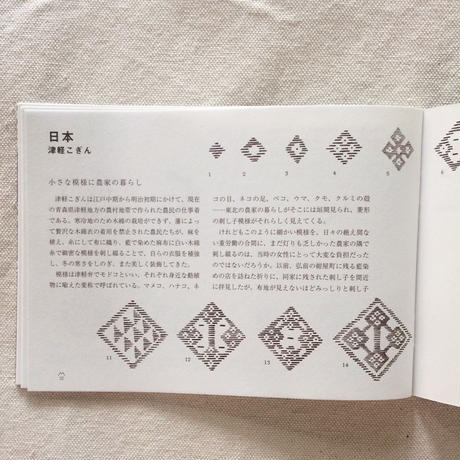 日本
津軽こぎん
1
2
3
4
5
小さな模様に農家の暮らし
津軽こぎんは江戸中期から明治初期にかけて、現在
の青森県津軽地方の農村地帯で作られた農民の仕事着
である。寒冷地のため木綿の栽培ができず、藩によっ
て贅沢な木綿衣の着用を禁止された農民たちが、麻を
植え、糸にして布に織り、藍で染めた麻布に白い木綿
糸で細密な模様を刺し綴ることで、自らの衣服を補強
し、冬の寒さをしのぎ、また美しく装飾してきた。
模様は津軽弁でモドコといい、それぞれ身近な動植
物に喩えた愛称で呼ばれている。マメコ、ハナコ、ネ
コの目、ネコの足、ベコ、ウマ、クモ、クルミの殻
──東北の農家の暮らしがそこには垣間見られ、菱形
の刺し子模様がそれらしく見えてくる。
けれどもこのように細かい模様を、日々の絶え間な
い重労働の合間に、まだ灯りも乏しかった農家の隅で
刺し綴るのは、当時の女性にとって大変な負担だった
のではないだろうか。以前、弘前の紺屋町に残る藍染
めの店を訪ねた折りに、同家に残された刺し子を間近
に拝見したが、布地が見えないほどみっしりと刺し子
11
12
13
14